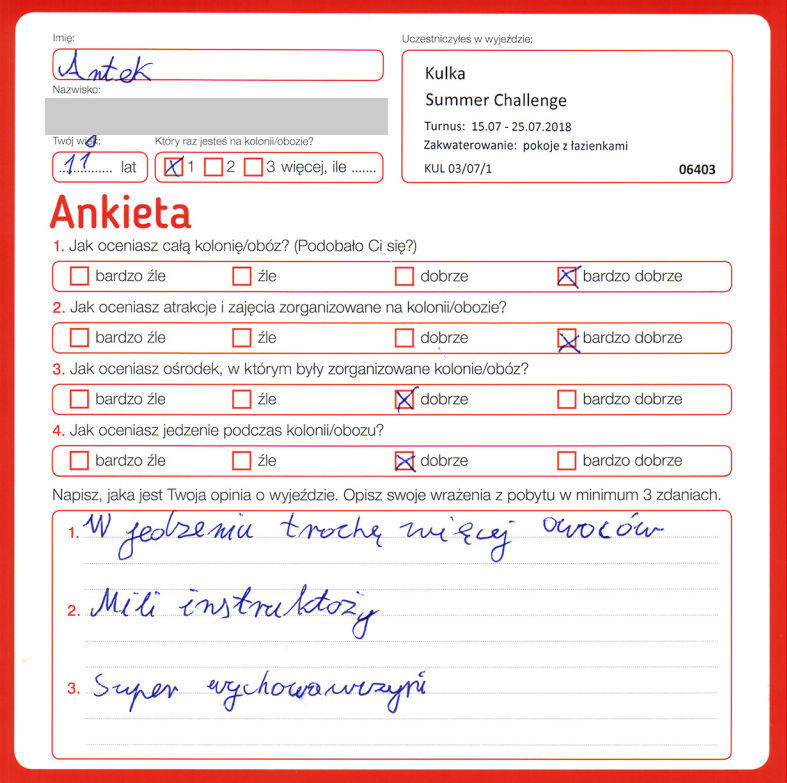 Imię:
Uczestniczyłeś w wyjeździe:
Antek
Kulka
Nazwisko:
Summer Challenge
Turnus: 15.07 - 25.07.2018
Twój wiek:
Który raz jesteś na kolonii/obozie?
Zakwaterowanie: pokoje z łazienkami
11 lat
1 2 3 więcej, ile .......
KUL 03/07/1 06403
Ankieta
1. Jak oceniasz całą kolonię/obóz? (Podobało Ci się?)
bardzo źle źle dobrze bardzo dobrze
2. Jak oceniasz atrakcje i zajęcia zorganizowane na kolonii/obozie?
bardzo źle źle dobrze bardzo dobrze
3. Jak oceniasz ośrodek, w którym były zorganizowane kolonie/obóz?
bardzo źle źle dobrze bardzo dobrze
4. Jak oceniasz jedzenie podczas kolonii/obozu?
bardzo źle źle dobrze bardzo dobrze
Napisz, jaka jest Twoja opinia o wyjeździe. Opisz swoje wrażenia z pobytu w minimum 3 zdaniach.
1. W jedzeniu trochę więcej owoców
2. Mili instruktoży
3. Super wychowawczyni